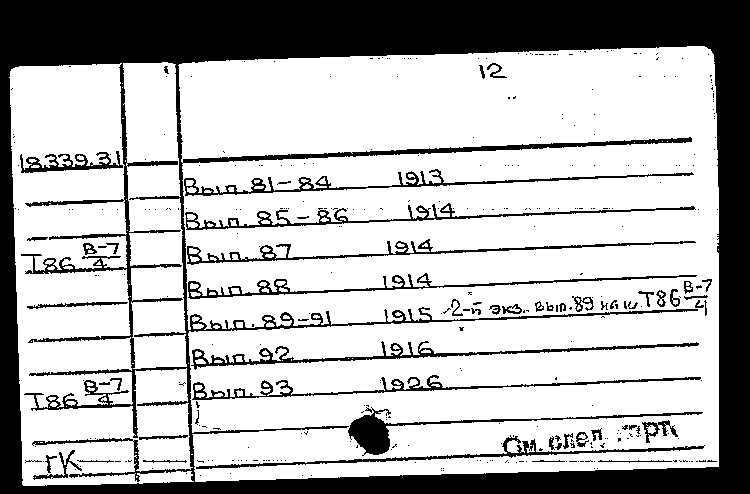 12
18.339.3.1
Вып. 81-84 1913
Вып. 85-86 1914
Т86 В-7/4 Вып. 87 1914
Вып. 88 1914
Вып. 89-91 1915 2-й экз. вып. 89 на ш Т86 В-7/4
Вып. 92 1916
Т86 В-7/4 Вып. 93 1926
См. след.
ГК